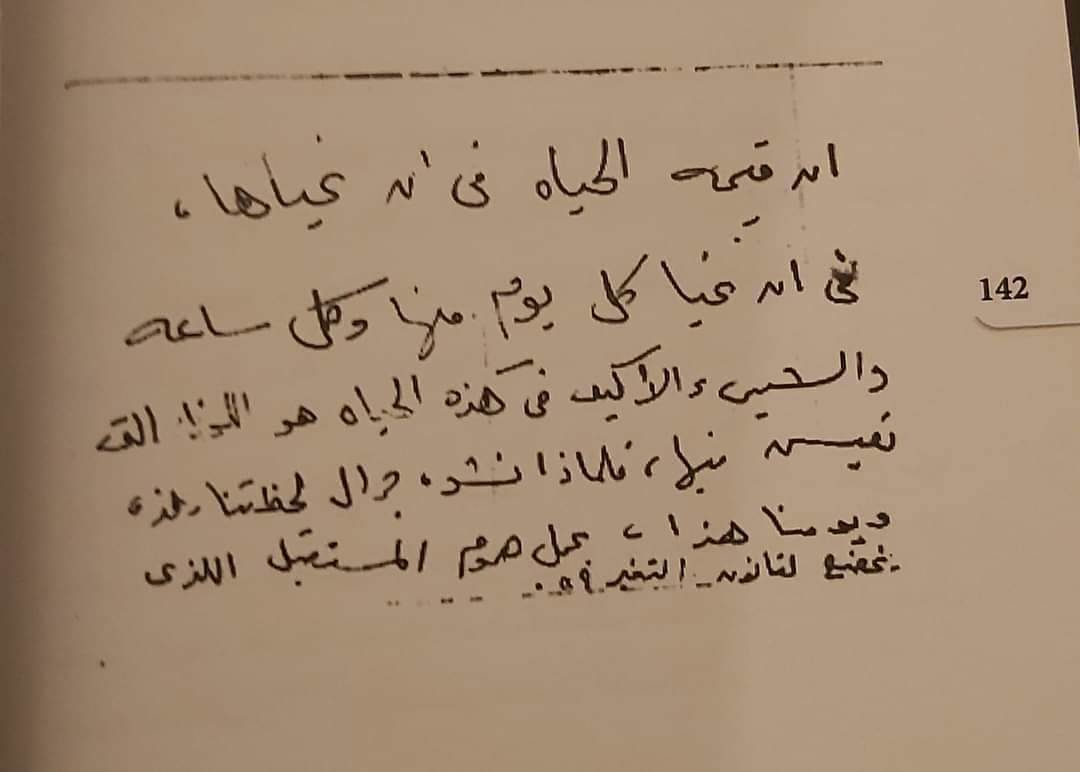 ان قيمه الحياه فى أن نحياها،
فى ان نحيا كل يوم منها وكل ساعه
142
والشيىء الاكيد فى هذه الحياه هو التى
نعيش فيها، فلماذا نشوه جمال لحظتنا هذه
ويومنا هذا، بحمل هموم المستقبل اللذى
يخضع لقانون التغير ؟؟.